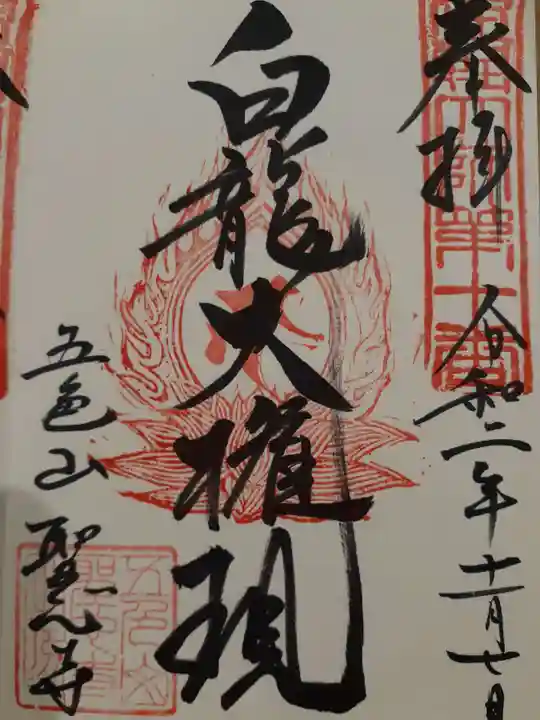 奉拝
令和二年十一月七日
白龍大権現
五色山 聖 寺
大師第十番